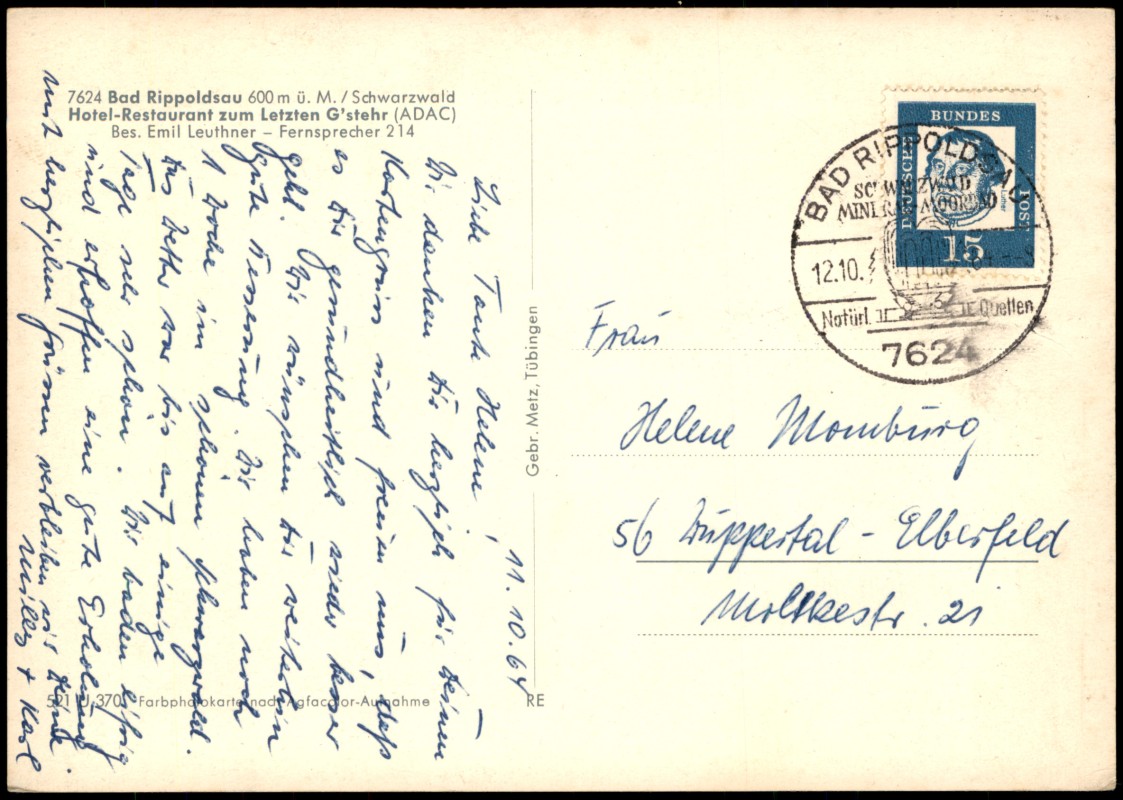 7624 Bad Rippoldsau 600 m ü. M. / Schwarzwald
Hotel-Restaurant zum Letzten G'stehr (ADAC)
Bes. Emil Leuthner – Fernsprecher 214
11.10.64
Liebe Tante Helene,
Wir danken Dir herzlich für Deinen
Kartengruss und freuen uns, dass
es Dir gesundheitlich wieder besser
geht. Wir wünschen Dir weiterhin
gute Besserung. Wir haben noch
1 Woche im schönen Schwarzwald.
Das Wetter war bis auf einige
Tage sehr schön. Wir baden eifrig
und erhoffen eine gute Erholung.
mit herzlichen Grüssen verbleiben wir Deine
Milly + Karl
521 U 370 Farbphotokarte nach Agfacolor-Aufnahme
RE
Gebr. Metz, Tübingen
DEUTSCHE
BUNDES
POST
15
BAD RIPPOLDSAU
SCHWARZWALD
MINERAL-MOORBAD
12.10.
Natürl. Quellen
7624
Frau
Helene Momburg
56 Wuppertal-Elberfeld
Moltkestr. 21